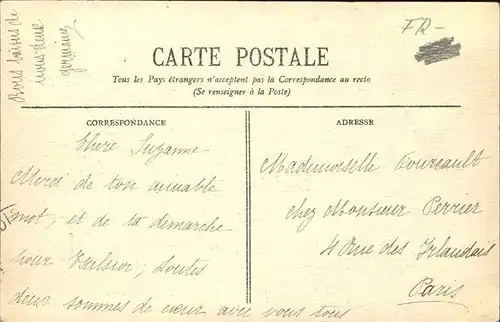 Bons baisers de
nous deux
Germaine
FR-
CARTE POSTALE
Tous les Pays étrangers n'acceptent pas la Correspondance au recto
(Se renseigner à la Poste)
CORRESPONDANCE
Chère Suzanne
Merci de ton aimable
mot, et de ta demarche
pour toutes
deux sommes de cœur avec vous tous
ADRESSE
Mademoiselle Foureault
chez Monsieur Perrier
4 Rue des Irlandais
Paris